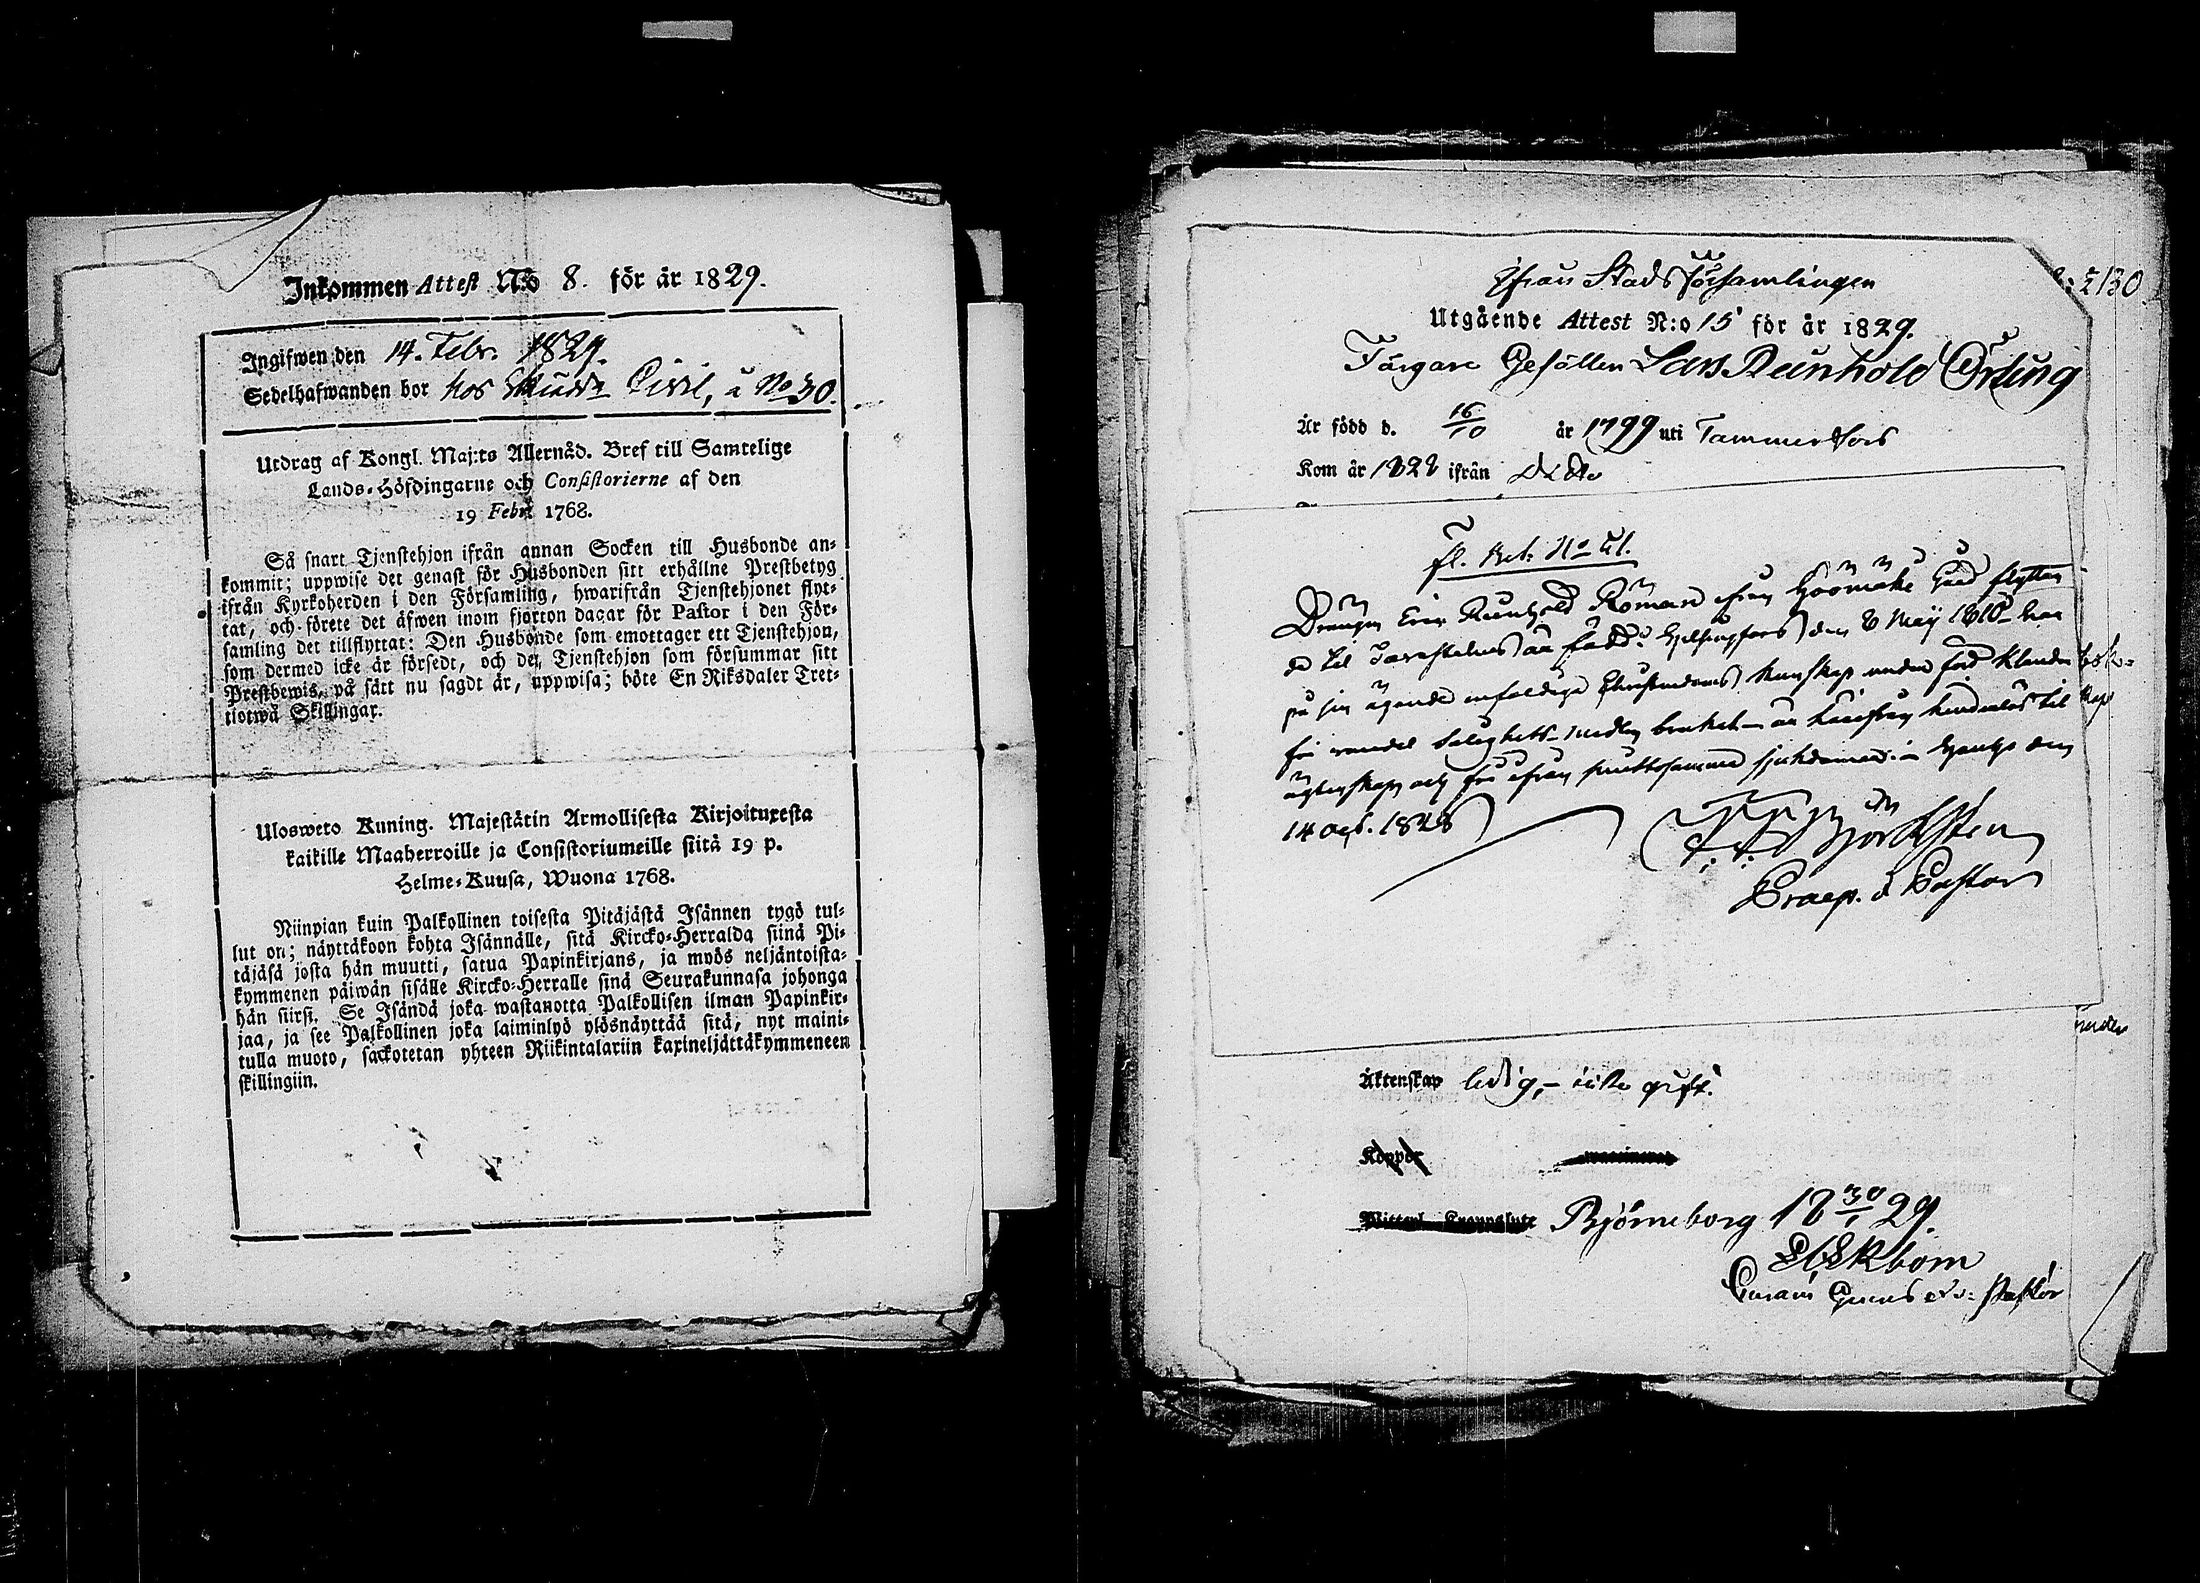 Inkommen Attest N:o 8. för år 1829.
Ingifwen den 14. Febr. 1829.
Sedelhafwanden bor hos Civil, å No 30.
Utdrag af Kongl. Maj:ts Allernåd. Bref till Samtelige
Lands-Höfdingarne och Consistorierne af den
19 Febr. 1768.
Så snart Tjenstehjon ifrån annan Socken till Husbonde an-
kommit; uppwise det genast för Husbonden sitt erhållne Prestbetyg
ifrån Kyrkoherden i den Församling, hwarifrån Tjenstehjonet flyt-
tat, och förete det äfwen inom fjorton dagar för Pastor i den För-
samling det tillflyttat: Den Husbonde som emottager ett Tjenstehjon,
som dermed icke är försedt, och det Tjenstehjon som försummar sitt
Prestbewis, på sätt nu sagdt är, uppwisa; böte En Riksdaler Tret-
tiotwå Skillingar.
Ulosweto Kuning. Majestätin Armollisesta Kirjoituxesta
kaikille Maaherroille ja Consistoriumeille siitä 19 p.
Helme-Kuusa, Wuona 1768.
Niinpian kuin Palkollinen toisesta Pitäjästä Isännen tygö tul-
lut on; näyttäkoon kohta Isännälle, sitä Kircko-Herralda siinä Pi-
täjäsä josta hän muutti, satua Papinkirjans, ja myös neljäntoista-
kymmenen päiwän sisälle Kircko-Herralle sinä Seurakunnasa johonga
hän siirsi. Se Isändä joka wastanotta Palkollisen ilman Papinkir-
jaa, ja see Palkollinen joka laiminlyö ylösnäyttää sitä, nyt maini-
tulla muoto, sackotetan yhteen Riikintalariin kaxineljättäkymmeneen
skillingiin.
ifrån Stads församlingen
Utgående Attest N:o 15 för år 1829.
Färgare Gesällen Lars Reinhold Örling
Är född d. 16/10 år 1799 uti Tammerfors
Kom år 1828 ifrån
fl. Bet. No 41.
Drängen Eric Roman ifrån Gård flyttan-
de til är född i Helsingfors den 8 Maij 1810 har
på sin ägande enfaldiga Christendoms kunskap under
fri wandel Salighets-medlen brukat är härifrån hinderlös til
ägtenskap och fri ifrån smittosamma sjukdomar. den
14 Oct. 1828
Björksten
Praep. & Pastor
Äktenskap ledig, - icke gift.
Koppor
Björneborg 18 30/1 29.
Ekbom
Pastor